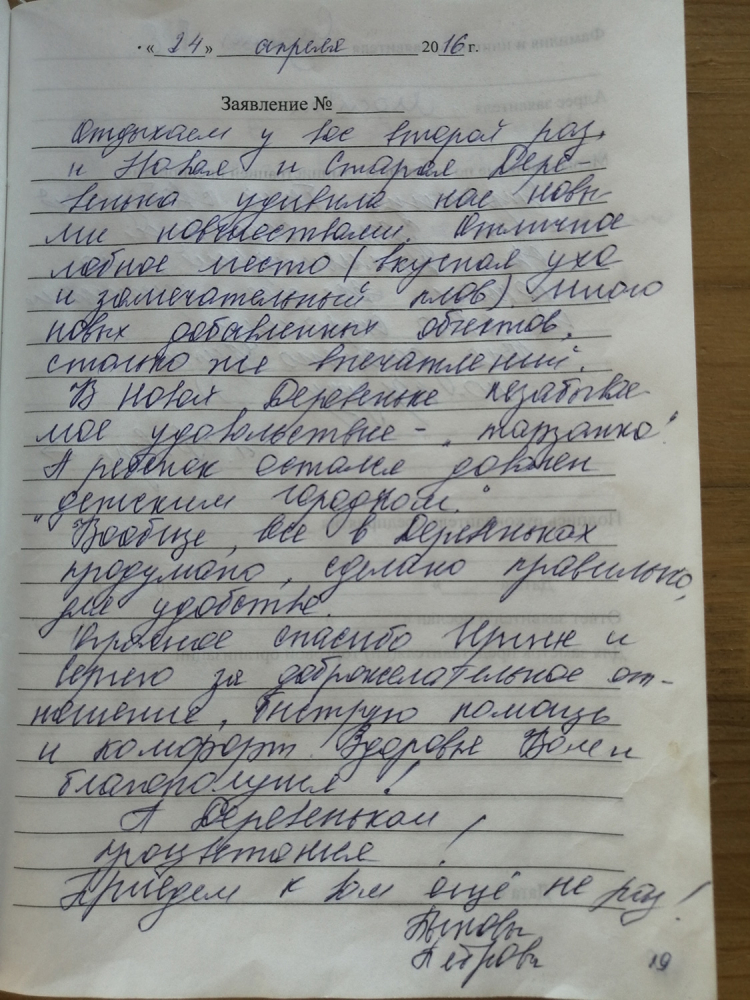 « 24 » апреля 2016 г.
Заявление №
Отдыхаем у вас второй раз,
и Новая и Старая Дере-
венька удивила нас новы-
ми новшествами. Отличное
лобное место (вкусная уха
и замечательный плов) много
новых добавленных объектов,
столько же впечатлений.
В Новой Деревеньке незабывае-
мое удовольствие - "тарзанка".
А ребёнок остался доволен
"детским городком."
Вообще, все в Деревеньках
продумано, сделано правильно,
для удобства.
Огромное спасибо Ирине и
Сергею за доброжелательное от-
ношение, быструю помощь
и комфорт. Здоровья Вам и
благополучия!
А Деревенькам
процветания!
Приедем к вам ещё не раз!
Петровы
19